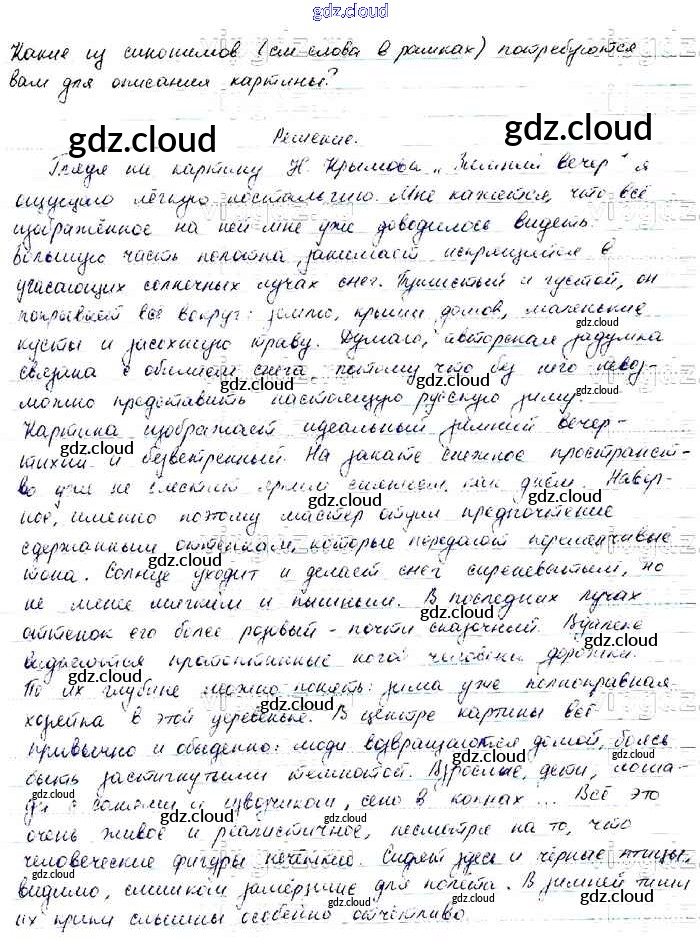 gdz.cloud
Какие из синонимов (см слова в рамках) потребуются
вам для описания картины?
gdz.cloud gdz.cloud
Решение.
Глядя на картину Н. Крымова „Зимний вечер" я
ощущаю лёгкую ностальгию. Мне кажется, что всё
изображённое на ней мне уже доводилось видеть.
Большую часть полотна занимает искрящийся в
угасающих солнечных лучах снег. Пушистый и густой, он
покрывает всё вокруг: землю, крыши домов, маленькие
кусты и засохшую траву. Думаю, авторская задумка
связана с обилием снега, потому что без него невоз-
можно представить настоящую русскую зиму.
Картина изображает идеальный зимний вечер-
тихий и безветренный. На закате снежное пространст-
во уже не блестит ярким сиянием, как днём. Навер-
ное, именно поэтому мастер отдал предпочтение
сдержанным оттенкам, которые передают переменчивые
тона. Солнце уходит и делает снег сиреневатым, но
не менее мягким и пышным. В последних лучах
оттенок его более розовый - почти сказочный. Вдалеке
виднеются протоптанные ногой человека дорожки.
По их глубине можно понять: зима уже полноправная
хозяйка в этой деревеньке. В центре картины всё
привычно и обыденно: люди возвращаются домой, боясь
быть застигнутыми темнотой. Взрослые, дети, лоша-
ди с санями и извозчиком, сено в копнах... Всё это
очень живое и реалистичное, несмотря на то, что
человеческие фигуры нечёткие. Сидят здесь и чёрные птицы,
видимо, слишком замёрзшие для полёта. В зимней тиши
их крики слышны особенно отчётливо.